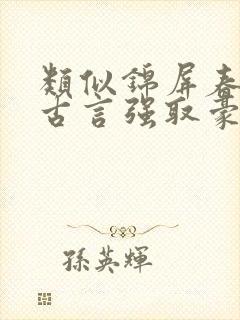 類似錦屏春
古言強取豪
孫英輝